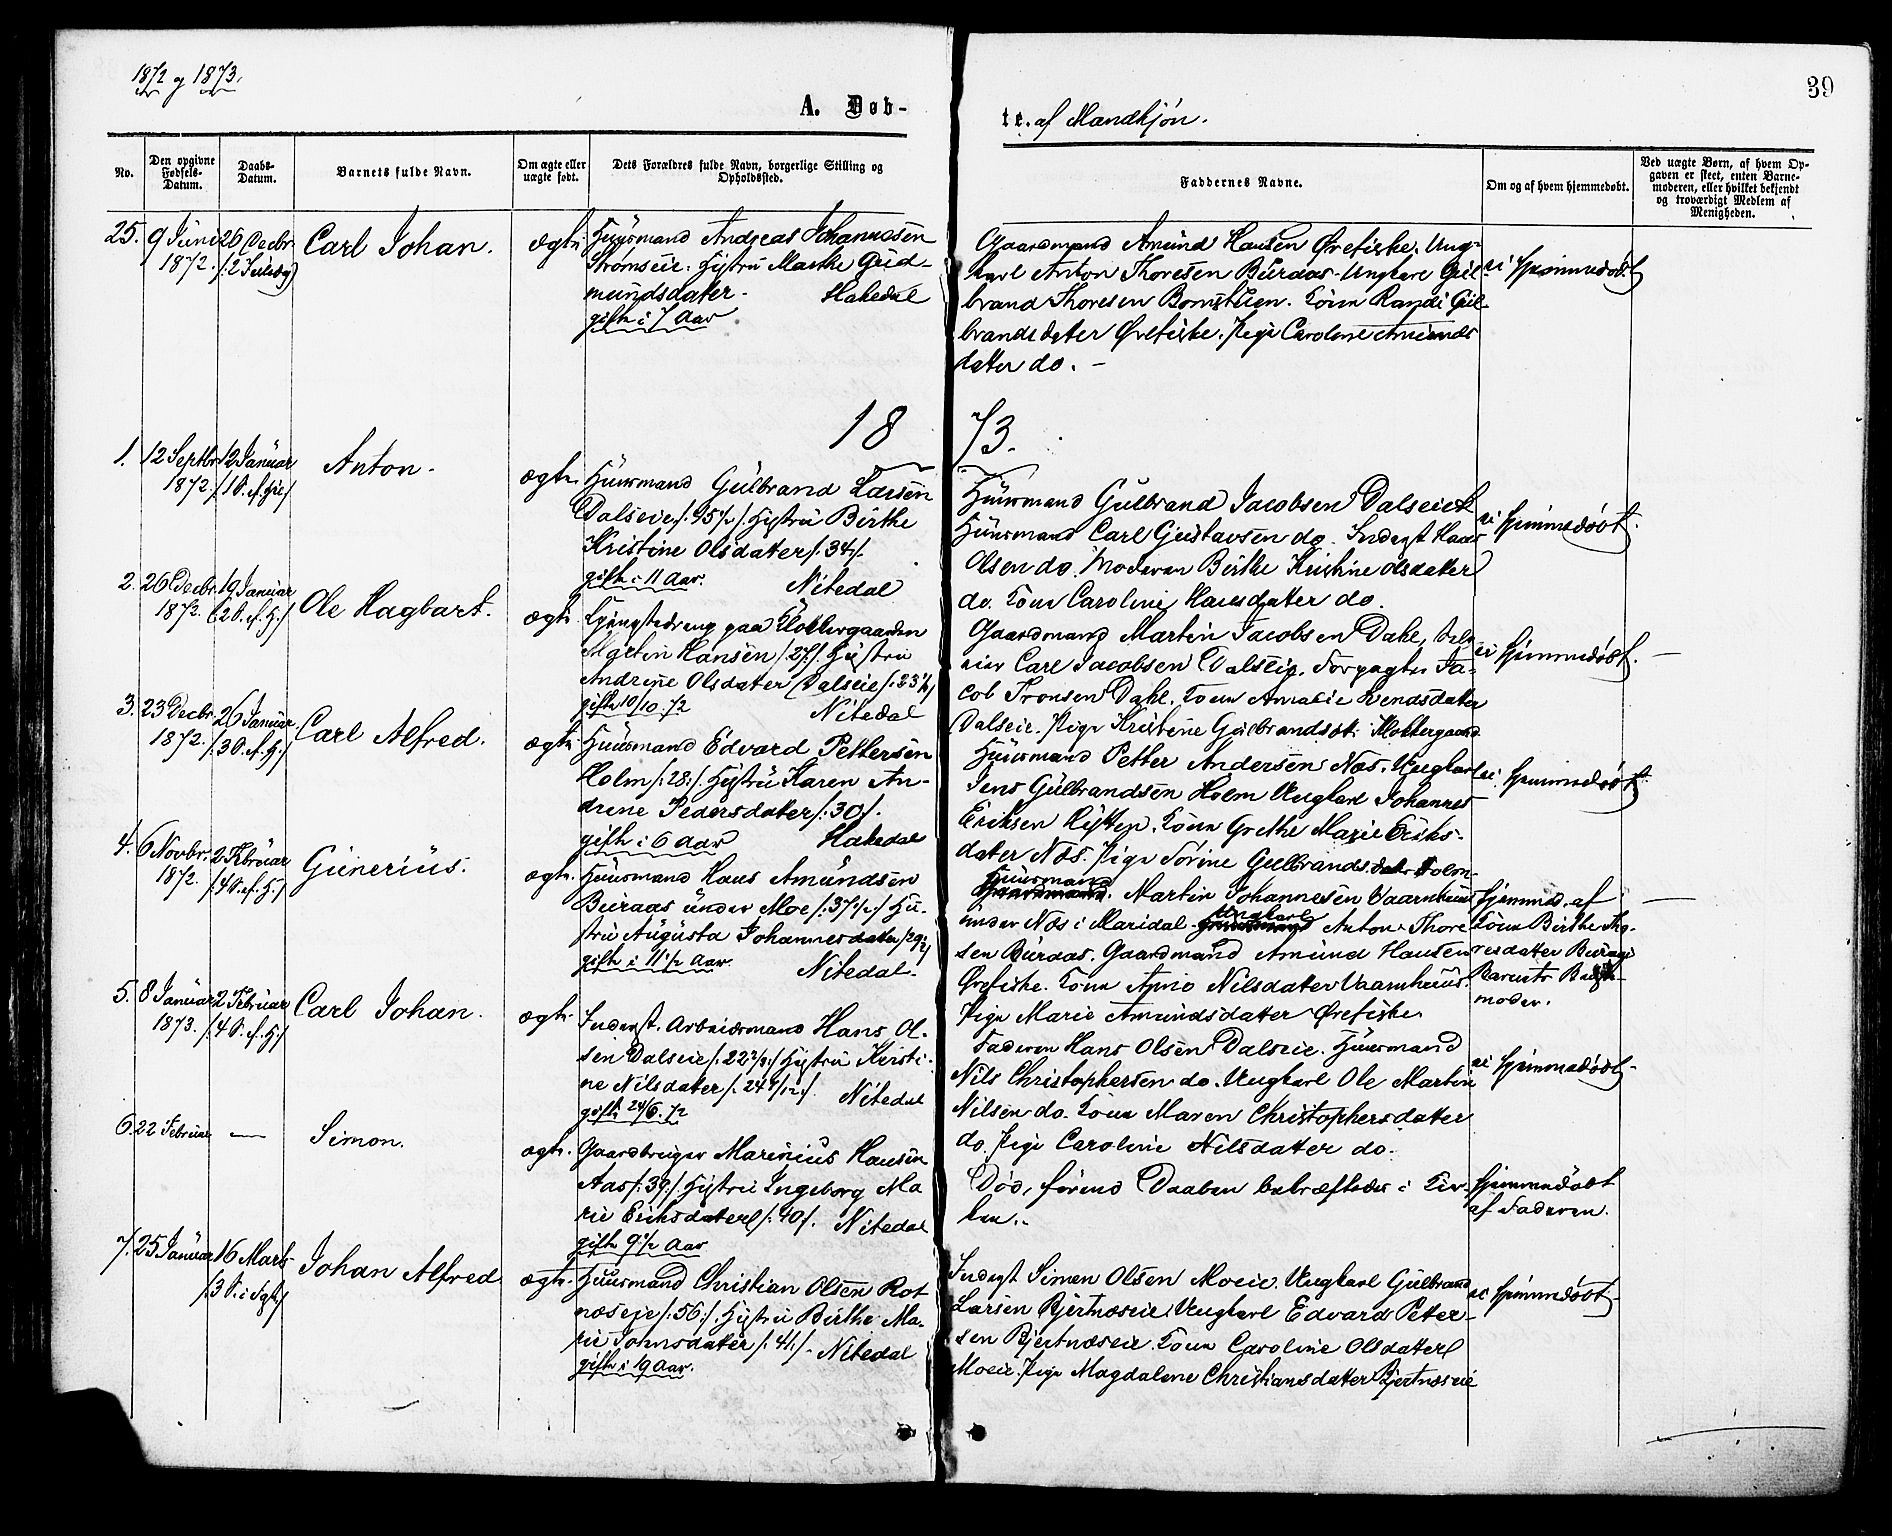 1872 og 1873.
39
A. Døb-
te. af Mandkjøn.
No.
Den opgivne Fødsels-Datum.
Daabs-Datum.
Barnets fulde Navn.
Om ægte eller uægte født.
Dets Forældres fulde Navn, borgerlige Stilling og Opholdssted.
Faddernes Navne.
Om og af hvem hjemmedøbt.
Ved uægte Børn, af hvem Op-
gaven er skeet, enten Barne-
moderen, eller hvilket bekjendt
og troværdigt Medlem af
Menigheden.
25. 9 Juni 1872.
26 Decbr. /:2 Juledag/
Carl Johan.
ægte
Huusmand Andreas Johannesen
Strømseie. Hustru Marthe Gud-
mundsdater. Hakedal
gifte i 7 Aar
Gaardmand Amund Hansen Ørefiske. Ung-
karl Anton Thoresen Buraas. Ungkarl Gul-
brand Thoresen Bomstuen. Kone Randi Gul-
brandsdater Ørefiske. Pige Caroline Amunds
dater do. -
ei hjemmedøbt
18 73.
1. 12 Septbr. 1872.
12 Januar /1 S. ef. H3K/
Anton.
ægte.
Huusmand Gulbrand Larsen
Dalseie /:45½/. Hustru Birthe
Kristine Olsdatter /:34:/.
gifte i 11 Aar. Nitedal
Huusmand Gulbrand Jacobsen Dalseiet
Huusmand Carl Gustavsen do. Inderst Hans
Olsen do. Moderen Birthe Kristine Olsdatter
do. Kone Caroline Hansdatter do.
ei hjemmedøbt.
2. 26 Decbr. 1872.
19 Januar /2 S. ef. H.:/
Ole Hagbart.
ægte
Gjængsedreng paa Klokkergaarden
Martin Hansen /27:/. Hustru
Andrine Olsdatter Dalseie /:23¼/
gifte 10/10. 72 Nitedal
Gaardmand Martin Jacobsen Dahl,
Carl Jacobsen Dalseie. Forpagter Ja-
cob Tronsen Dahl. Kone Amalie Svendsdater
Dalseie. Pige Kristine Gulbrandsdt. Klokkergaard
ei hjemmedøbt.
3. 23 Decbr. 1872.
26 Januar /:3 S. ef. H:/
Carl Alfred.
ægte
Huusmand Edvard Pettersen
Holm /:28:/. Hustru Karen An-
drine Pedersdater /:30/.
gifte i 6 Aar Hakedal
Huusmand Petter Andersen Næs. Ungkarl
Jens Gulbrandsen Holm Ungkarl Johannes
Eriksen Hytten. Kone Grethe Marie Eriks-
dater Næs. Pige Sørine Gulbrandsdatr Holm.
ei hjemmedøbt.
4. 6 Novbr. 1872.
2 Februar /:4 S. ef. H:/
Gunerius.
ægte.
Huusmand Hans Amundsen
Buraas under Moe /:37½:/ Hu-
stru Augusta Johannesdater /29:/
gifte i 11½ Aar. Nitedal.
Huusmand
Gaardmand. Martin Johannesen Vaarnhuus
under Næs i Maridal. Ungkarl Anton Thore
sen Buraas. Gaardmand Amund Hansen
Ørefiske. Kone Anne Nilsdater Vaarnhuus.
Pige Marie Amundsdatter Ørefiske.
Hjemmed. af
Kone Birthe Tho-
resdatter Buraas
Barnets Beste-
moder.
5. 8 Januar 1873.
2 Februar /:4 S. ef. H:/
Carl Johan.
ægte.
Inderst. Arbeidsmand Hans Ol-
sen Dalseie /:22 2/3:/ Hustru Kirsti-
ne Nilsdater /:24 4/12:/. Nitedal
gifte 24/6. 72
Faderen Hans Olsen Dalseie. Huusmand
Nils Christophersen do. Ungkarl Ole Martin
Nilsen do. Kone Maren Christophersdater
do. Pige Caroline Nilsdatter do.
ei hjemmedøbt.
6. 22 Februar
—
Simon.
ægte.
Gaardbruger Marinius Hansen
Aas /:39:/ Hustru Ingeborg Ma
rie Eriksdater /:40/. Nitedal
gifte 9½ Aar
Død, førend Daaben bekræftedes i Kir-
ken.
Hjemmedøbt
af Faderen.
7. 25 Januar
16 Marts /:3 S. i Fste/
Johan Alfred
ægte.
Huusmand Christian Olsen Rot
næseje /:56:/. Hustru Birthe Ma-
rie Tomsdater /:41:/. Nitedal
gifte i 19 Aar.
Inderst Simen Olsen Moeie. Ungkarl Gulbrand
Larsen Bjertnæseie. Ungkarl Edvard Petter-
sen Bjertnæseie. Kone Caroline Olsdater
Moeie. Pige Magdalene Christiansdatter Bjertnæseie
ei hjemmedøbt.